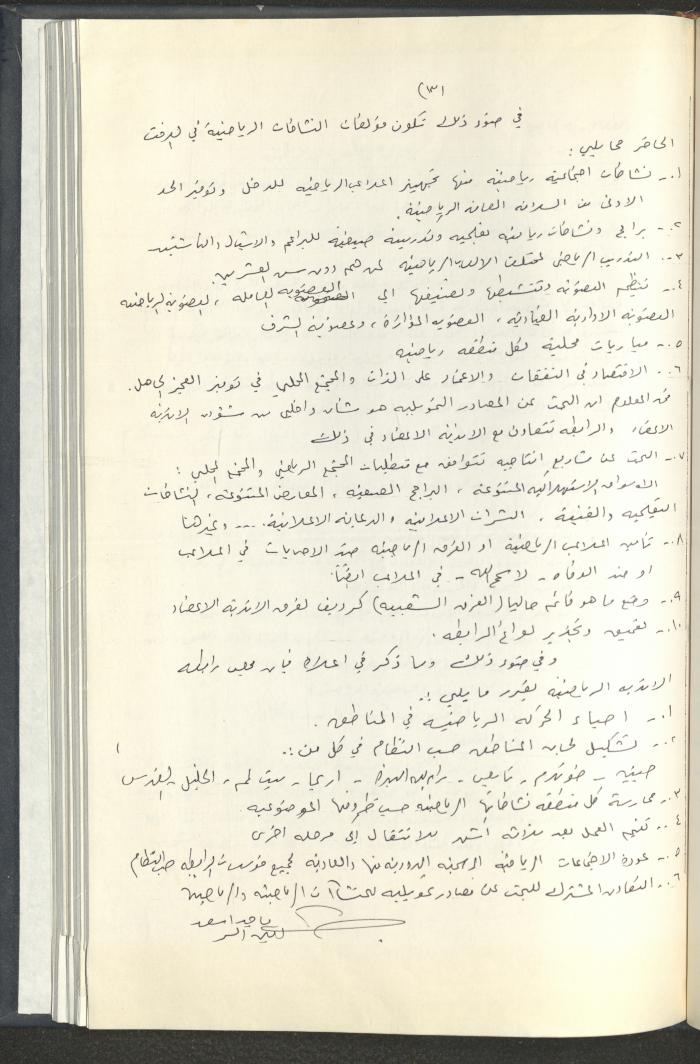 (٣)
في ضوء ذلك تكون مؤلفات النشاطات الرياضية في الوقت
الحاضر مما يلي :
١.- نشاطات اجتماعية رياضية منها تجهيز الملاعب الرياضية للدخل وتوفير الحد
الادنى من السلامة العامة الرياضية .
٢.- برامج ونشاطات رياضية تعليمية وتدريبية صيفية للبراعم والاشبال والناشئين
٣.- التدريب الرياضي لمختلف الالعاب الرياضية لمن هم دون سن العشرين .
٤.- تنظيم العضوية وتنشيطها وتصنيفها الى العضوية العاملة ، العضوية الرياضية
العضوية الادارية القيادية ، العضوية المؤازرة ، وعضوية الشرف
٥.- مباريات محلية لكل منطقة رياضية
٦.- الاقتصاد في النفقات والاعتماد على الذات والمجتمع المحلي في توفير العجز الحاصل .
فمن المعلوم ان البحث عن المصادر التمويلية هو شأن داخلي من شؤون الاندية
الاعضاء والرابطة تتعاون مع الاندية الاعضاء في ذلك
٧.- البحث عن مشاريع انتاجية تتوافق مع متطلبات المجتمع الرياضي والمجتمع المحلي :
الاسواق الاستهلاكية المتنوعة ، البرامج الصيفية ، المعارض المتنوعة ، النشاطات
التعليمية والفنية ، النشرات الاعلامية والدعاية الاعلانية .... وغيرها
٨.- تأمين الملاعب الرياضية او الفرق الرياضية ضد الاصابات في الملاعب
او ضد الوفاه - لا سمح الله - في الملاعب ايضاً.
٩.- وضع ما هو قائم حاليا (الفرق الشعبية) كرديف لفرق الاندية الاعضاء
١٠.- تعميق وتجذير لوائح الرابطة .
وفي ضوء ذلك وما ذكر في اعلاه فإن مجلس رابطة
الاندية الرياضية يقرر ما يلي :.
١.- احياء الحركة الرياضية في المناطق .
٢.- تشكيل لجان المناطق حسب النظام في كل من :.
جنين - طولكرم - نابلس - رام الله البيرة - اريحا - بيت لحم - الخليل - القدس
٣.- ممارسة كل منطقة نشاطاتها الرياضية حسب ظروفها الموضوعية
٤.- تقييم العمل بعد ثلاثة أشهر للانتقال الى مرحلة اخرى
٥.- عودة الاجتماعات الرياضية الرسمية الدورية منها والعادية لجميع مؤسسات الرابطة حسب النظام
٦.- التعاون المشترك للبحث عن مصادر تمويلية للمنشآت الرياضية والرياضيين
ماجد اسعد
امين السر